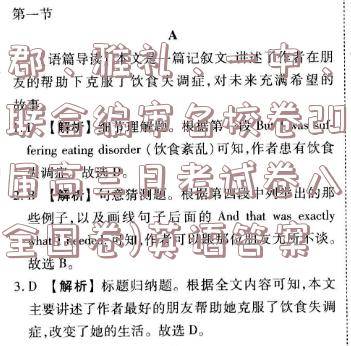 第一节
A
语篇导读:本文是一篇记叙文,讲述了作者在朋
友的帮助下克服了饮食失调症,对未来充满希望的
故事。
郡、雅礼、一中、
联合编审名校卷20
届高三月考试卷八
全国卷)英语答案
1. 【解析】细节理解题。根据第一段 But I was suf-
fering eating disorder(饮食紊乱)可知,作者患有饮食
失调症。故选D。
2. B 【解析】句意猜测题。根据第四段中列举出的那
些例子,以及画线句子后面的 And that was exactly
what I needed. 可知,作者可以跟那位朋友无所不谈。
故选 B。
3. D 【解析】标题归纳题。根据全文内容可知,本文
主要讲述了作者最好的朋友帮助她克服了饮食失调
症,改变了她的生活。故选 D。